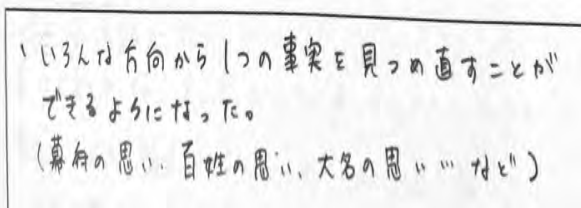 ・いろんな方向から1つの事実を見つめ直すことが
できるようになった。
(幕府の思い、百姓の思い、大名の思い…など)